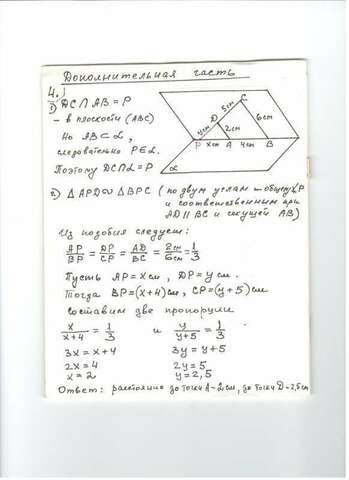 Дополнительная часть
4.
1) DC∩AB = P
- в плоскости (ABC)
Но AB⊂α,
следовательно P∈α.
Поэтому DC∩α = P
C
5см
D
yсм
2см
6см
P xсм A 4см B
α
2) △APD∾△BPC (по двум углам - общему ∠P
и соответственным при
AD∥BC и секущей AB)
Из подобия следует:
AP/BP = DP/CP = AD/BC = 2см/6см = 1/3
Пусть AP = xсм, DP = yсм.
Тогда BP = (x+4)см, CP = (y+5)см
Составим две пропорции
x/(x+4) = 1/3 и y/(y+5) = 1/3
3x = x+4 3y = y+5
2x = 4 2y = 5
x = 2 y = 2,5
Ответ: расстояние до точки A - 2см, до точки D - 2,5см